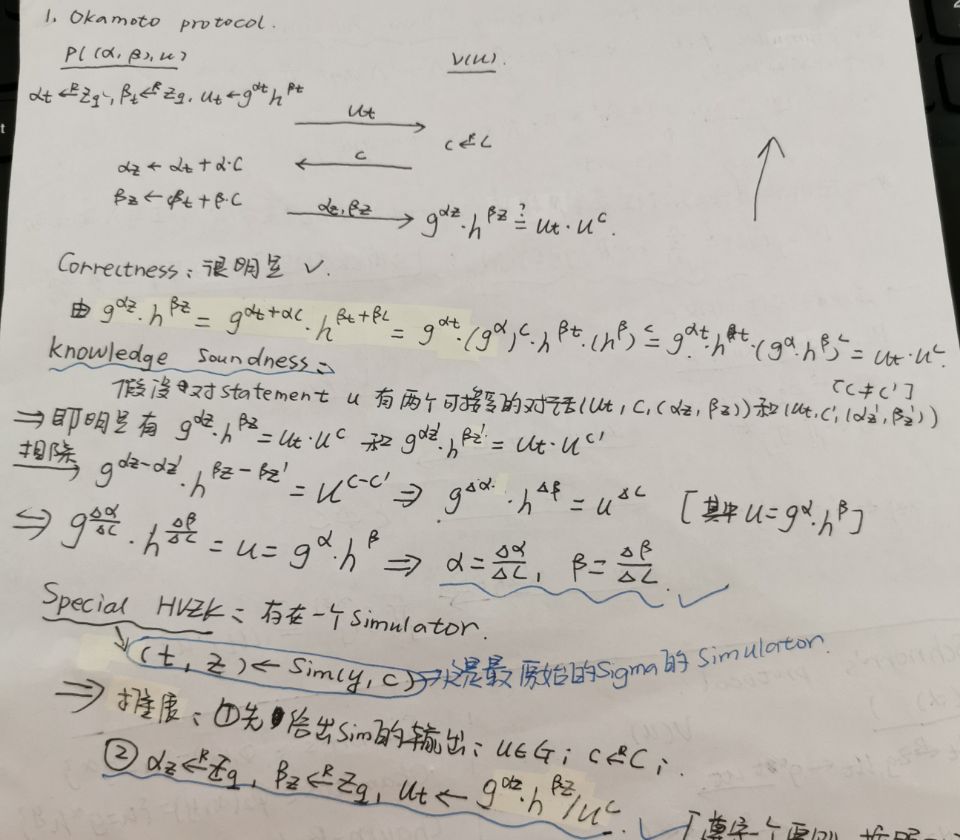 1. Okamoto protocol.
P((α, β), u) V(u).
αt ←R Zq, βt ←R Zq, ut ← g^αt h^βt
ut
c ←R C
c
αz ← αt + α·C
βz ← βt + β·C
αz, βz
g^αz · h^βz ?= ut · u^c.
Correctness: 很明显 ✓.
由 g^αz · h^βz = g^(αt+αc) · h^(βt+βc) = g^αt · (g^α)^c · h^βt · (h^β)^c = g^αt · h^βt · (g^α · h^β)^c = ut · u^c
knowledge soundness:
[c ≠ c']
假设对 statement u 有两个可接受的对话(ut, c, (αz, βz)) 和 (ut, c', (αz', βz'))
⇒ 即明显有 g^αz · h^βz = ut · u^c 和 g^αz' · h^βz' = ut · u^c'
相除→ g^(αz-αz') · h^(βz-βz') = u^(c-c') ⇒ g^Δα · h^Δβ = u^Δc [其中 u = g^α · h^β]
⇒ g^(Δα/Δc) · h^(Δβ/Δc) = u = g^α · h^β ⇒ α = Δα/Δc, β = Δβ/Δc. ✓
Special HVZK: 存在一个 Simulator.
(t, z) ← Sim(y, c) → 这是最原始的Sigma的 Simulator.
⇒ 推广: ①先给出Sim的输出: u∈G; c ←R C;
② αz ←R Zq, βz ←R Zq, ut ← g^αz · h^βz / u^c. ✓